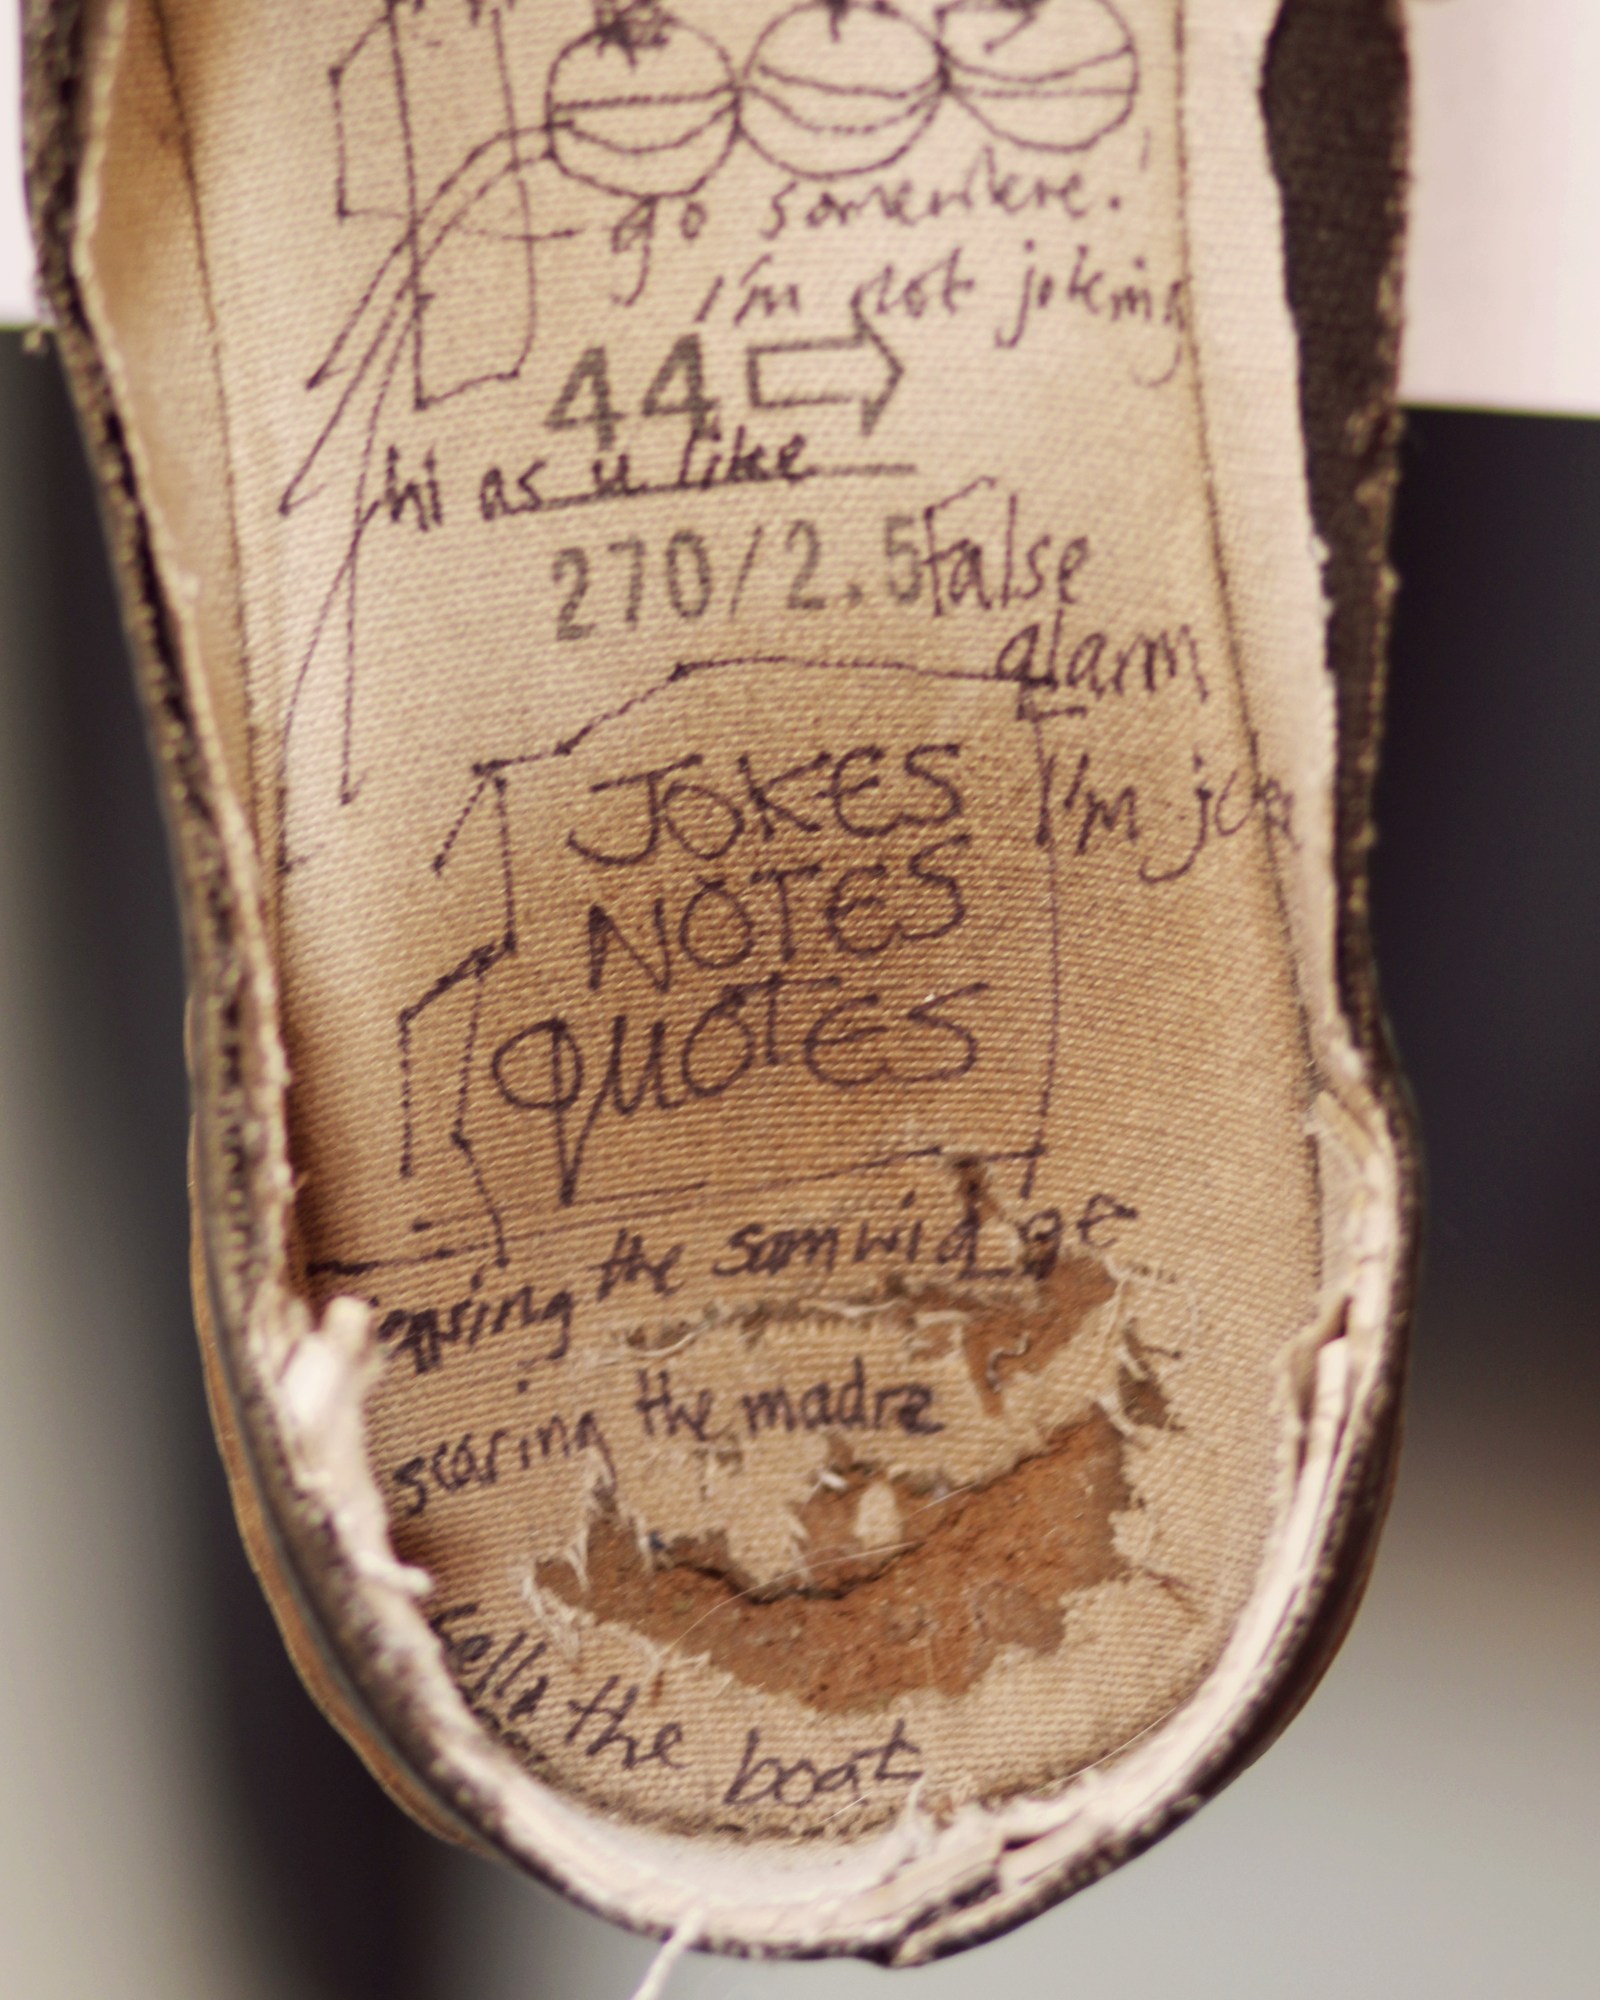 go somewhere.
I'm not joking
44
hi as u like
270/2.5
False
alarm
I'm
JOKES
NOTES
QUOTES
the
scaring the madre
the boat